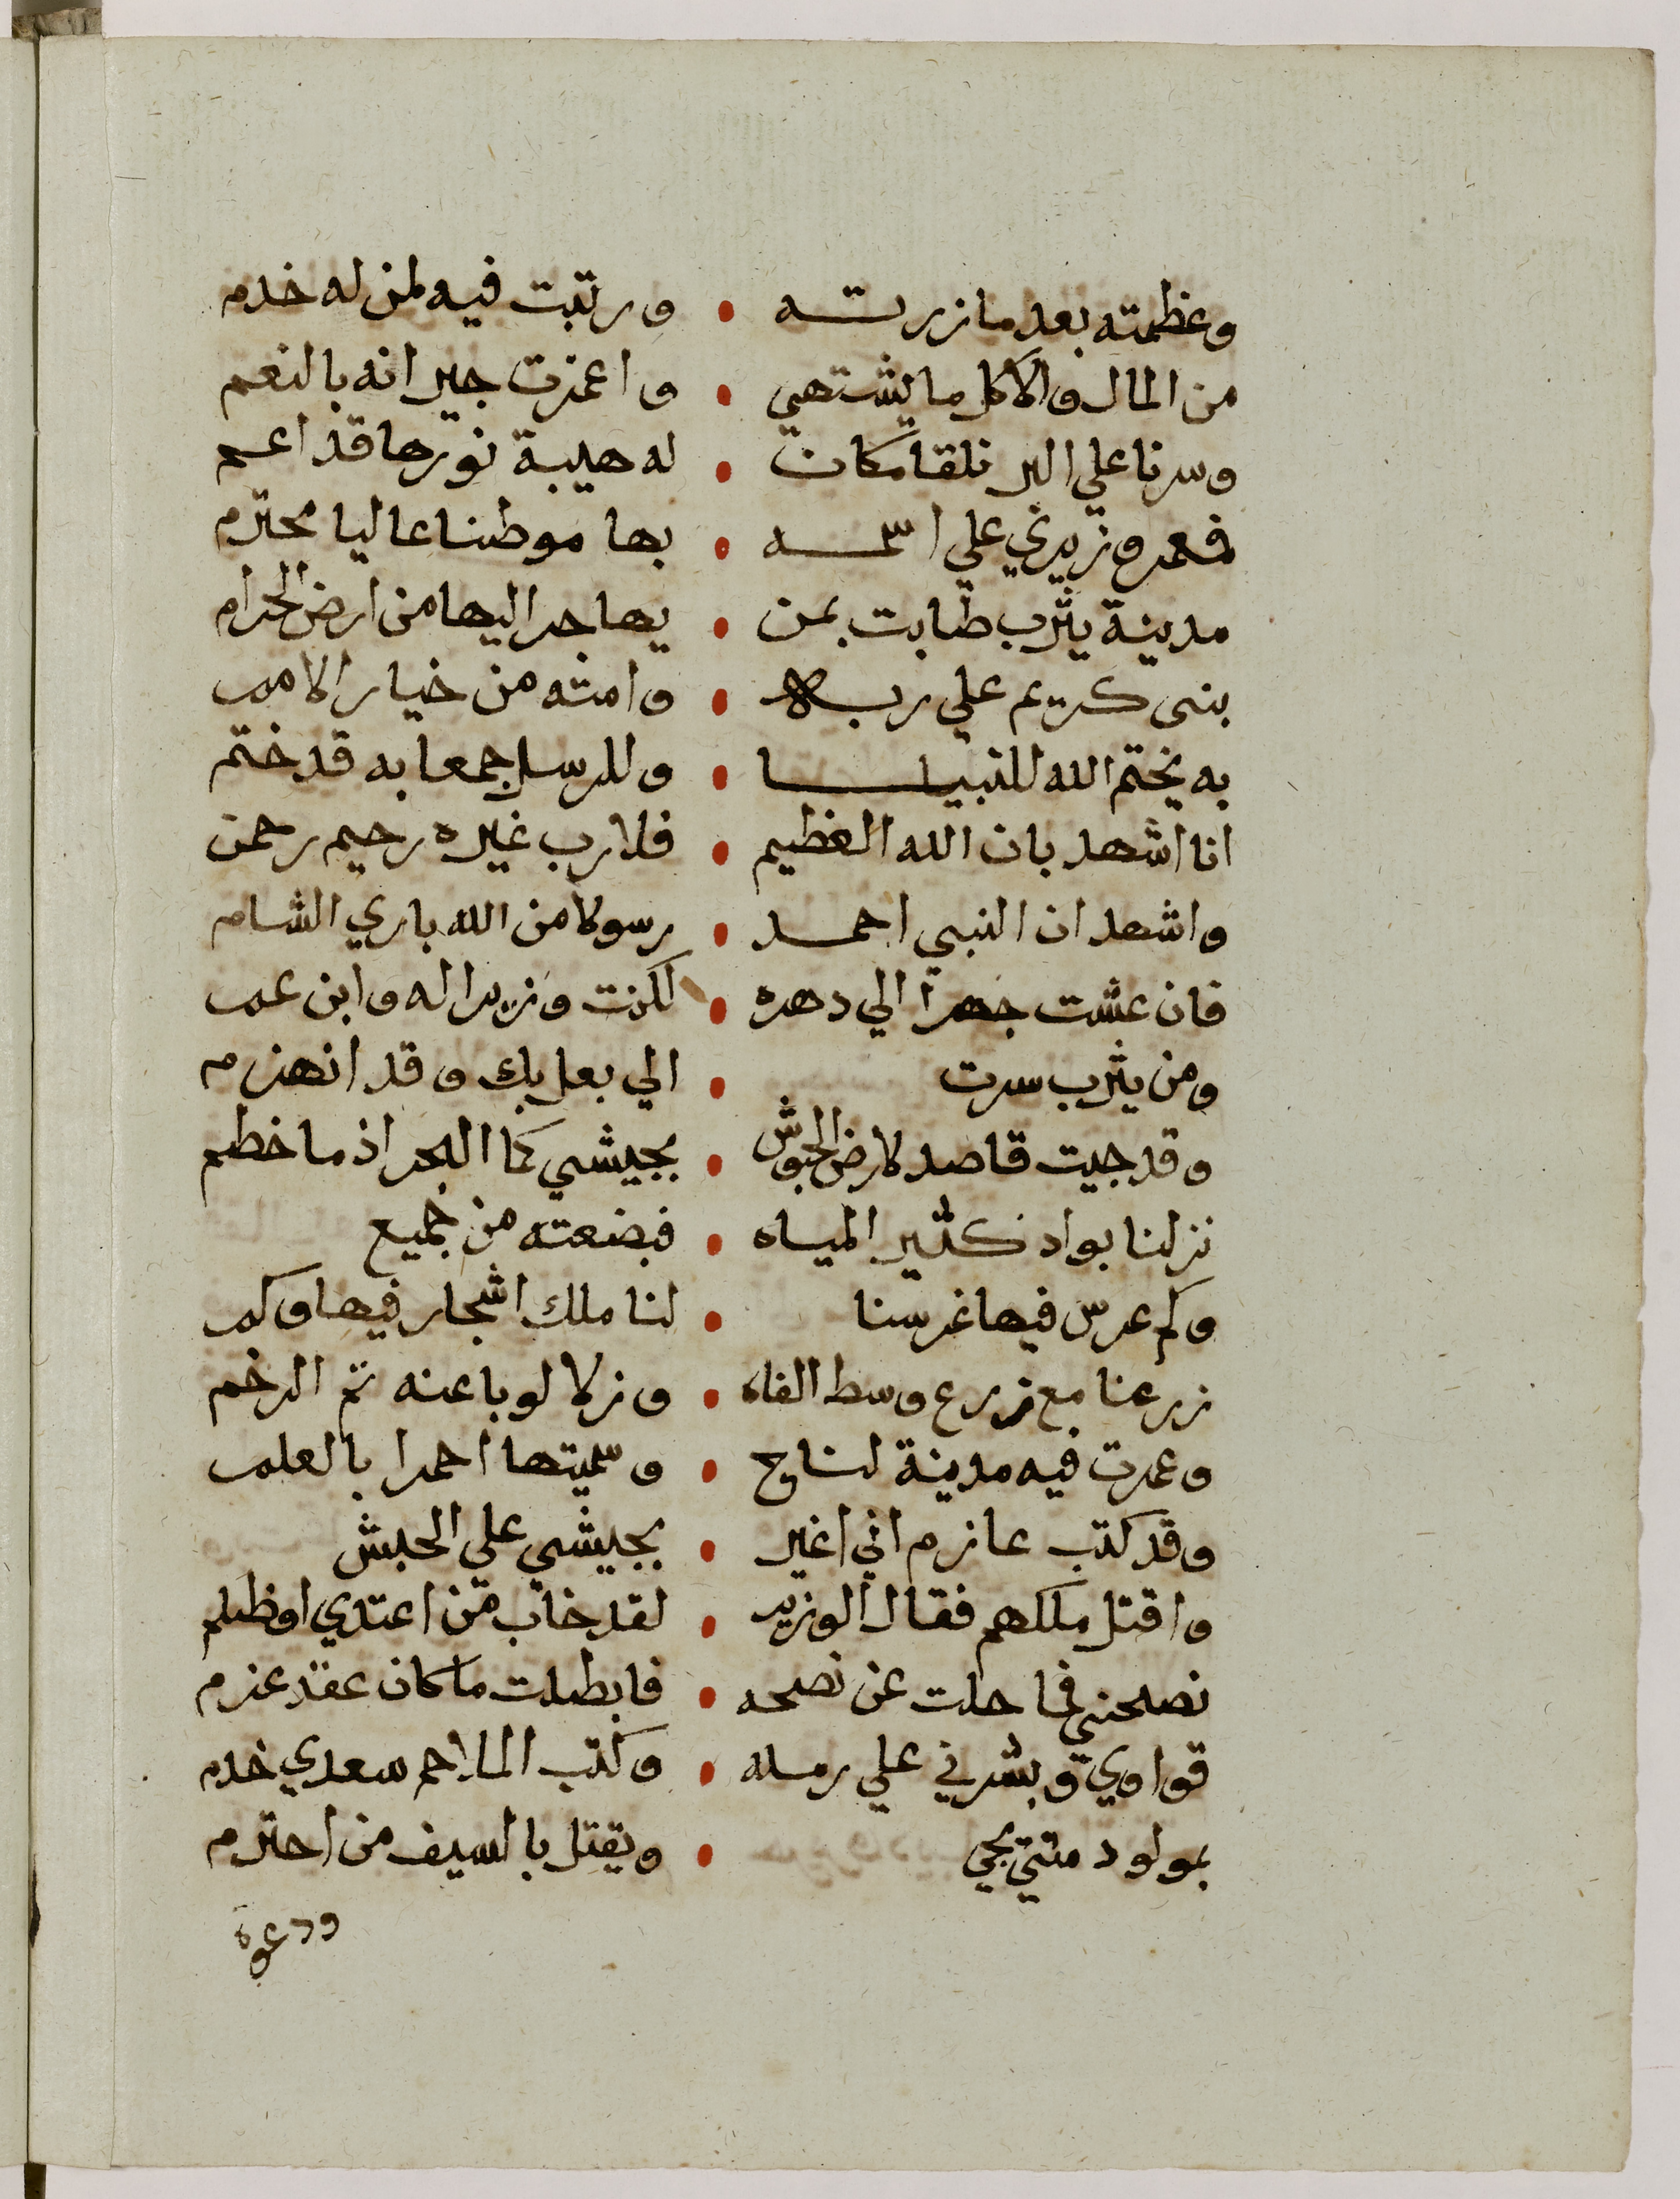 وعظمته بعد ما زرته • ورتبت فيه لمن له خدم
من المال والاكل ما يشتهي • واعزت جيرانه بالنعم
وسرنا علي البر نلقا مكان • له هيبة نورها قد اعم
فعمر وزيري علي اسمه • بها موطنا عاليا محترم
مدينة يثرب طابت بمن • يهاجر اليها من ارض الحرام
بنى كريم علي ربه • وامته من خيار الامم
به يختم الله للنبيا • وللرسل جمعا به قد ختم
انا اشهد بان الله العظيم • فلا رب غيره رحيم رحمن
واشهد ان النبي احمد • رسولا من الله باري الشام
فان عشت جهرا الي دهره • لكنت وزيرا له وابن عم
ومن يثرب سرت • الي بعلبك وقد انهزم
وقد جيت قاصد لارض الحبوش • بجيشي كما البحر اذ ما خطم
نزلنا بواد كثير المياه • فبضعته من جميع
وكم عرس فيها غرسنا • لنا ملك اشجار فيها وكم
زرعنا مع زرع وسط الفاه • وزلا لوبا عنه ثم الرخم
وعمرت فيه مدينة لناج • وسميتها احمرا بالعلم
وقد كتب عازم اني اغير • بجيشي علي الحبش
واقتل ملكهم فقال الوزير • لقد خاب من اعتدي او ظلم
نصحني فما حلت عن نصحه • فابطلت ما كان عقد عزم
قواوي وبشرني علي رمله • وكتب الملاحم سعدي خدم
بمولود متتي يجي • ويقتل بالسيف من احترم
ودعوة